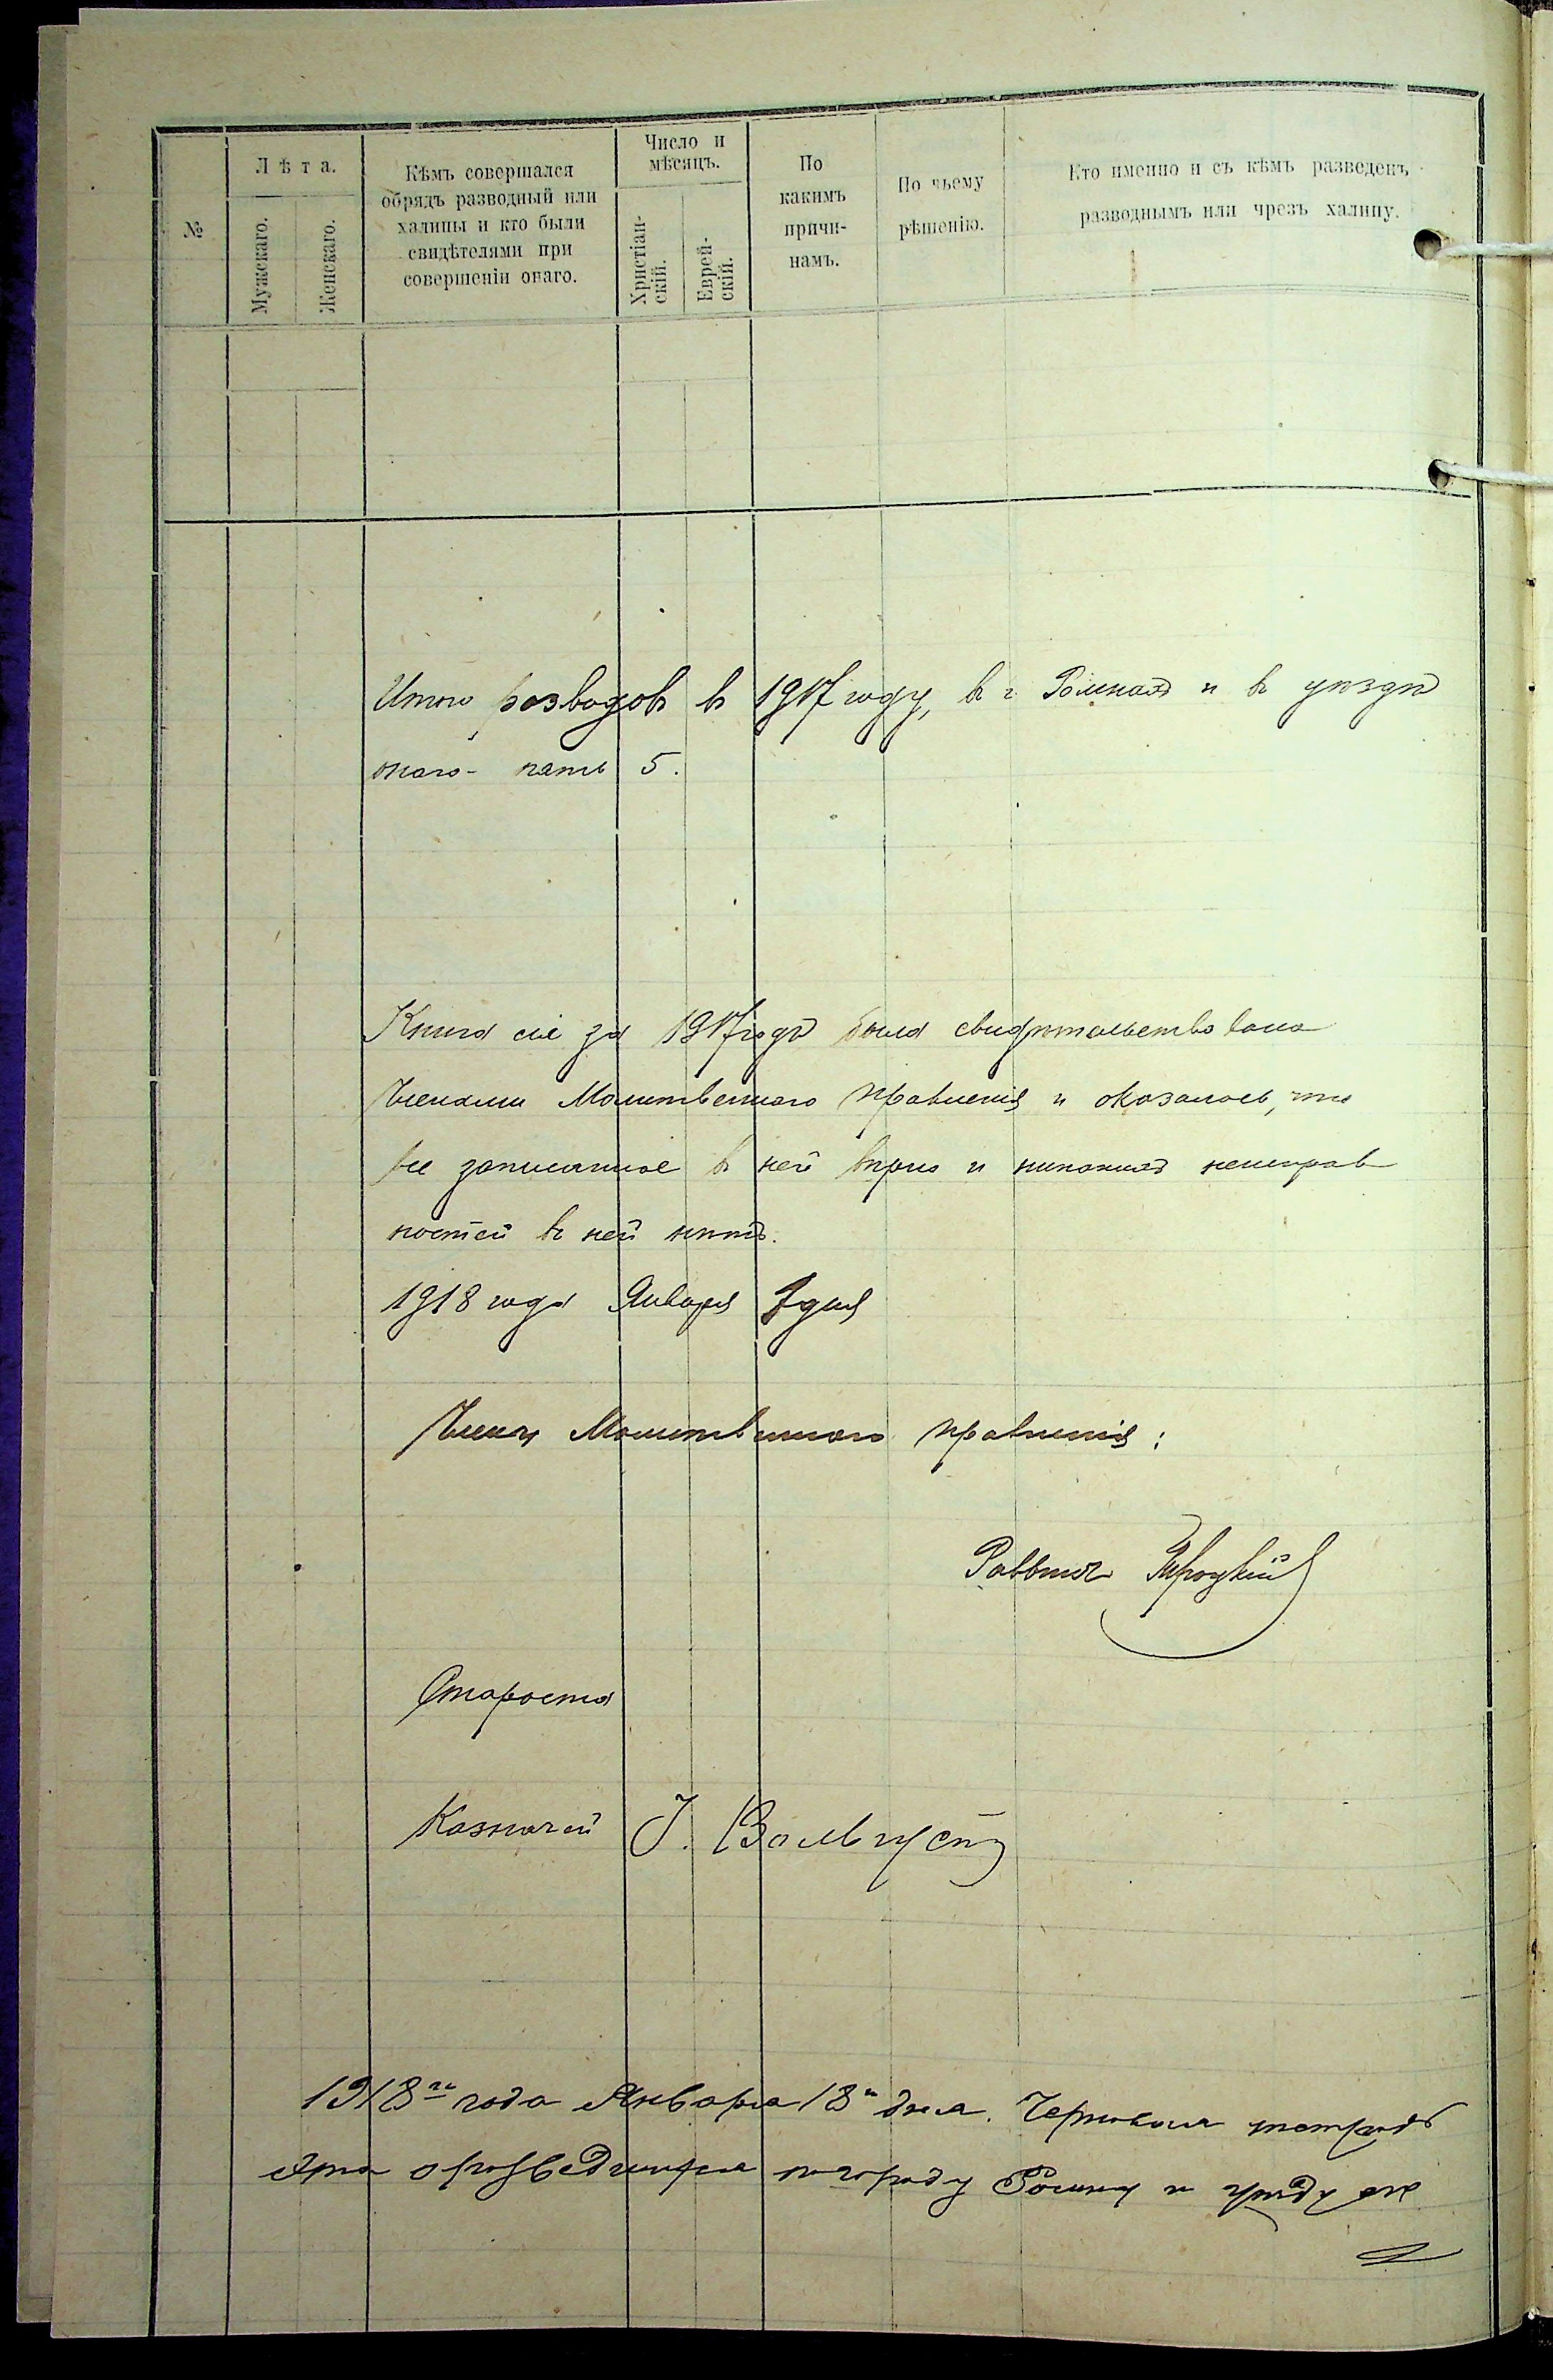 №
Лѣта.
Мужскаго.
Женскаго.
Кѣмъ совершался
обрядъ разводный или
халицы и кто были
свидѣтелями при
совершеніи онаго.
Число и
мѣсяцъ.
Христіан-
скій.
Еврей-
скій.
По
какимъ
причи-
намъ.
По чьему
рѣшенію.
Кто именно и съ кѣмъ разведенъ
разводнымъ или чрезъ халицу.
Итого разводовъ въ 1917 году, въ г. Ромнахъ и въ уѣздѣ
онаго - пять 5.
Книга сіе за 1917 годъ была свидѣтельствована
Членами Молитвеннаго правленія и оказалось, что
все записанное въ ней вѣрно и никакихъ неисправ
ностей въ ней нѣтъ.
1918 года Января 7 дня
Члены Молитвеннаго правленія:
Раввинъ
Староста
Казначей І.
1918го года Января 18 дня. тетрадь
эта о по городу Ромну и уѣзду